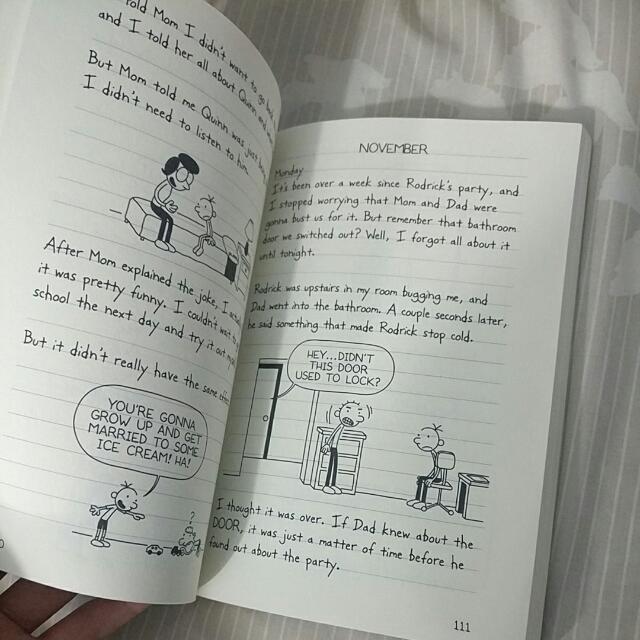 told Mom I didn't want to go
and I told her all about Quinn and
But Mom told me Quinn was just
I didn't need to listen to him.
After Mom explained the joke, I
it was pretty funny. I couldn't wait
school the next day and try it out
But it didn't really have the same
YOU'RE GONNA
GROW UP AND GET
MARRIED TO SOME
ICE CREAM! HA!
?
NOVEMBER
Monday
It's been over a week since Rodrick's party, and
I stopped worrying that Mom and Dad were
gonna bust us for it. But remember that bathroom
door we switched out? Well, I forgot all about it
until tonight.
Rodrick was upstairs in my room bugging me, and
Dad went into the bathroom. A couple seconds later,
he said something that made Rodrick stop cold.
HEY...DIDN'T
THIS DOOR
USED TO LOCK?
I thought it was over. If Dad knew about the
DOOR, it was just a matter of time before he
found out about the party.
111